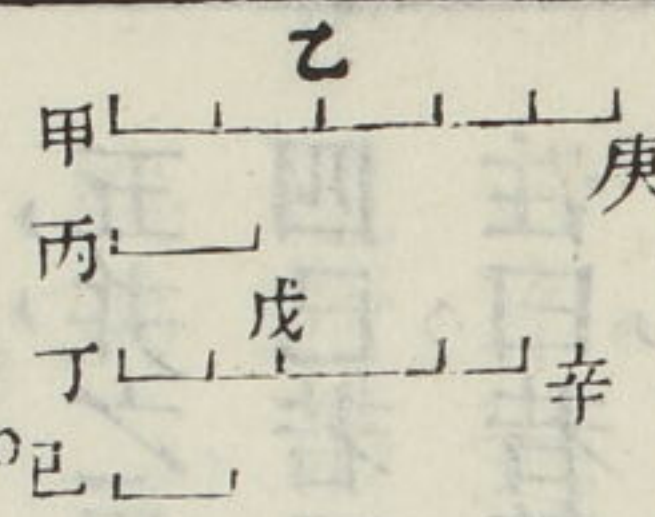 乙
甲 庚
丙
戊
丁 辛
己